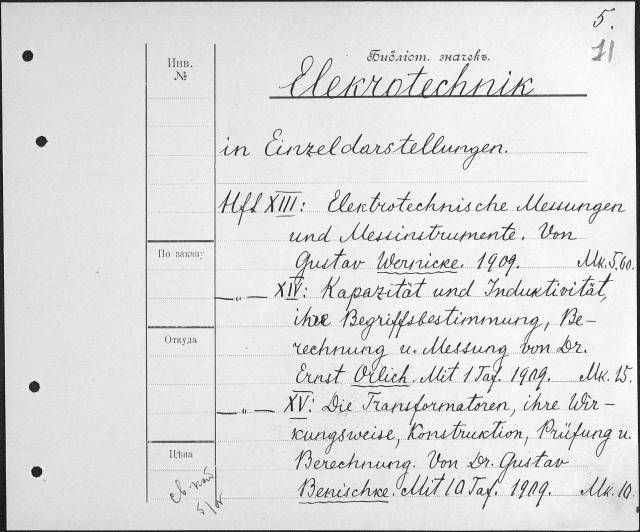 5.
11
Инв.
№
Библіот. значекъ.
Elekrotechnik
in Einzeldarstellungen.
Hft XIII: Elektrotechnische Messungen
und Messinstrumente. Von
По заказу
Gustav Wernicke. 1909. Mk. 5.60.
—„— XIV: Kapazität und Induktivität,
ihre Begriffsbestimmung, Be-
Откуда
rechnung u. Messung von Dr.
Ernst Orlich. Mit 1 Taf. 1909. Mk. 15.
—„— XV: Die Transformatoren, ihre Wir-
kungsweise, Konstruktion, Prüfung u.
Цѣна
Berechnung. Von Dr. Gustav
Benischke. Mit 10 Taf. 1909. Mk. 10.